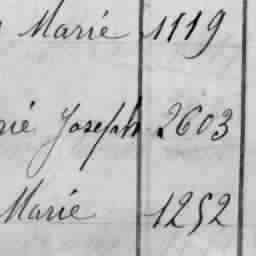 Marié 1119
rié Joseph 2603
Marie 1252